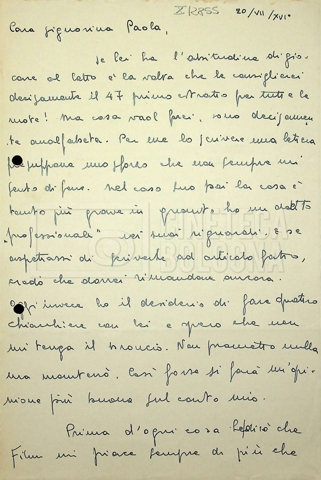 Z12855
20/VII/XVI°
Cara signorina Paola,
se lei ha l'abitudine di gio-
care al lotto è la volta che le consiglierei
decisamente il 47 primo estratto per tutte le
ruote! Ma cosa vuol farci, sono decisamen
te analfabeta. Per me lo scrivere una lettera
presuppone uno sforzo che non sempre mi
sento di fare. Nel caso suo poi la cosa è
tanto più grave in quanto ho un debito
"professionale" nei suoi riguardi. E se
aspettassi di scriverle ad articolo fatto,
credo che dovrei rimandare ancora.
Oggi invece ho il desiderio di fare quattro
chiacchiere con lei e spero che non
mi tenga il broncio. Non prometto nulla
ma manterrò. Così forse si farà un'opi-
nione più buona sul conto mio.
Prima d'ogni cosa le dirò che
Film mi piace sempre di più che